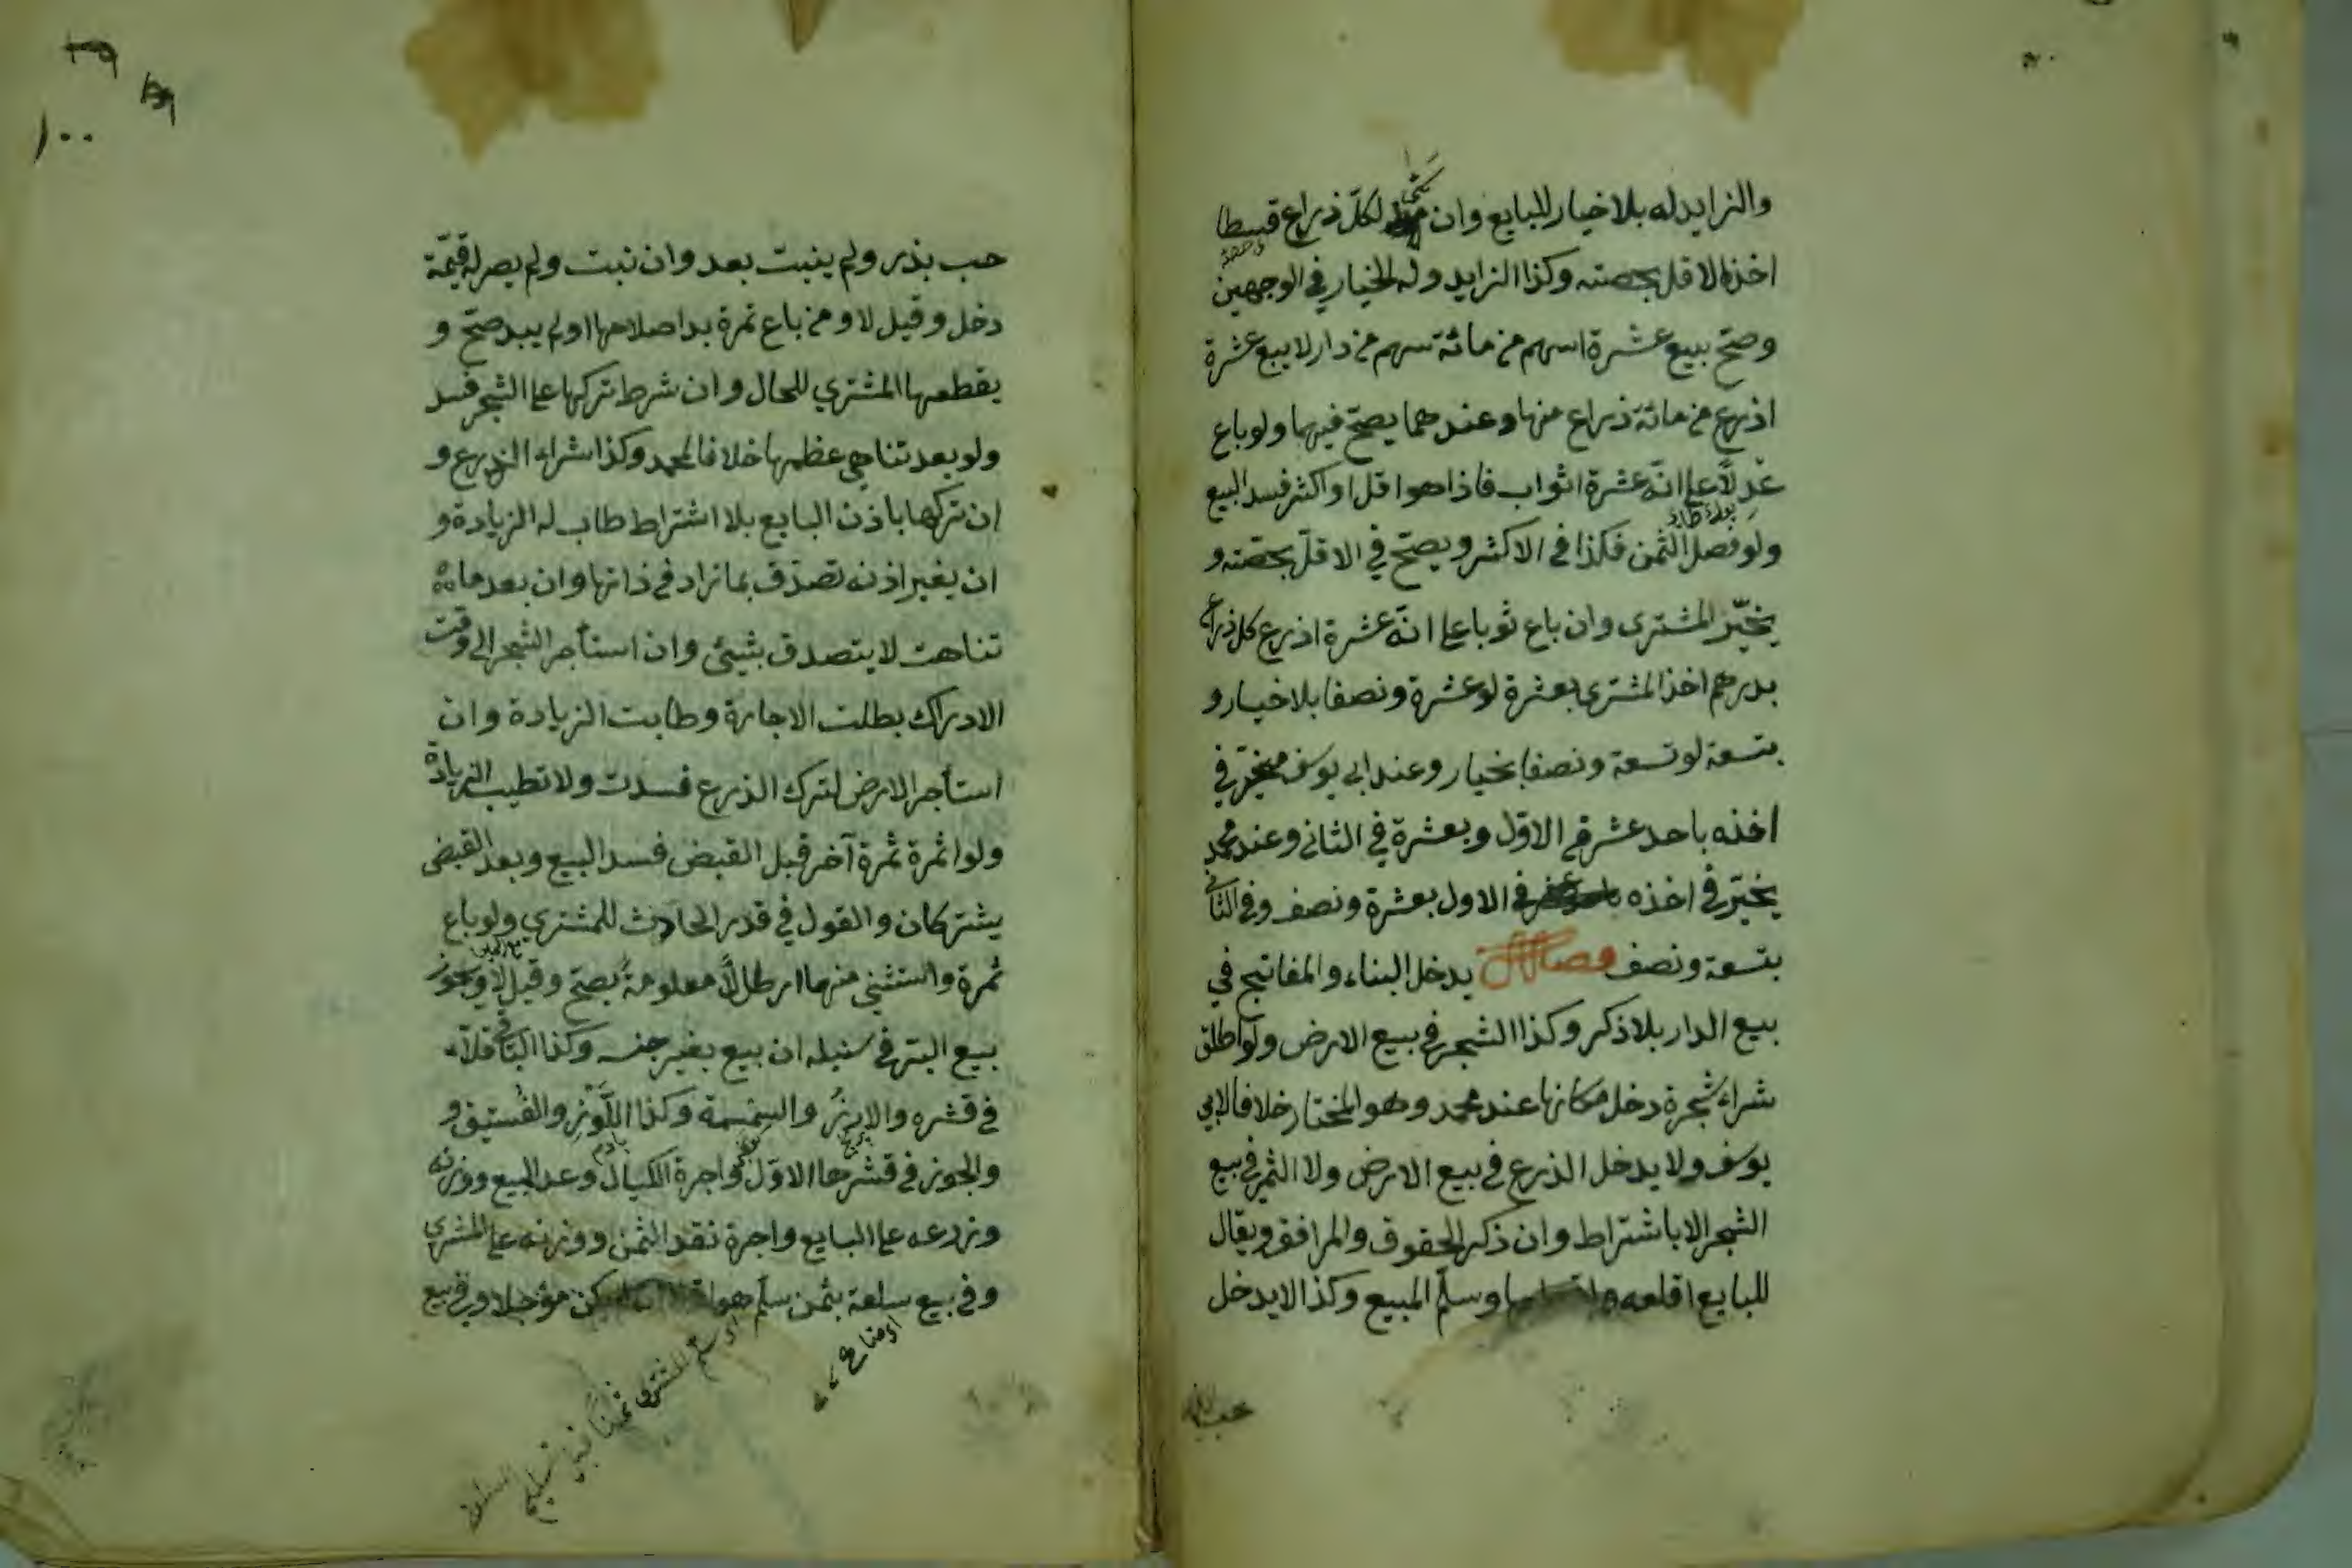 والزايد له بلا خيار للبايع وان سمى لكلّ ذراع قسطا
اخذ الاقل بحصته وكذا الزايد وله الخيار في الوجهين
وصحّ بيع عشرة اسهم من مائة سهم من دار لا بيع عشرة
اذرع من مائة ذراع منها وعندهما يصحّ فيهما ولو باع
عدلًا على انّه عشرة اثواب فاذا هو اقل او اكثر فسد البيع
ولو فصل الثمن فكذا في الاكثر ويصحّ في الاقلّ بحصّته و
يخيّر المشترى وان باع ثوبا على انّه عشرة اذرع كل ذراع
بدرهم اخذ المشترى بعشرة لو عشرة ونصفا بلا خيار و
بتسعة لو تسعة ونصفا بخيار وعند ابى يوسف مخيّر في
اخذه باحد عشر في الاوّل وبعشرة في الثانى وعند محمد
يخيّر في اخذه في الاول بعشرة ونصف وفي الثانى
بتسعة ونصف فصل يدخل البناء والمفاتيح في
بيع الدار بلا ذكر وكذا الشجر في بيع الارض ولو اطلق
شراء شجرة دخل مكانها عند محمد وهو المختار خلافا لابى
يوسف ولا يدخل الذرع في بيع الارض ولا الثمر في بيع
الشجر الا باشتراط وان ذكر الحقوق والمرافق ويقال
للبايع اقلعه وسلّم المبيع وكذا لا يدخل
١٠٠
حب بذر ولم ينبت بعد وان نبت ولم يصر له قيمّة
دخل وقيل لا ومن باع ثمرة بدا صلاحها او لم يبد صحّ و
يقطعها المشتري للحال وان شرط تركها على الشجر فسد
ولو بعد تناهى عظمها خلافا لمحمد وكذا شراء الزرع و
ان تركها باذن البايع بلا اشتراط طاب له الزيادة و
ان بغير اذنه تصدّق بما زاد في ذاتها وان بعد ما
تناهت لا يتصدق بشيئ وان استأجر الشجر الى وقت
الادراك بطلت الاجارة وطابت الزيادة وان
استأجر الارض لترك الذرع فسدت ولا تطيب الزيادة
ولو اثمرة ثمرة آخر قبل القبض فسد البيع وبعد القبض
يشتركان والقول في قدر الحادث للمشتري ولو باع
ثمرة واستثنى منها ارطالًا معلومةً يصحّ وقيل لا ويجوز
بيع البرّ في سنبله ان بيع بغير جنسه وكذا الباقلّاء
في قشره والارزّ والسمسمة وكذا اللّوز والفستق و
والجوز في قشرها الاوّل واجرة الكيال وعد المبيع ووزنه
وزرعه على البايع واجرة نقد الثمن ووزنه على المشترى
وفي بيع سلعة بثمن سلّم هو مؤجلا وفي بيع